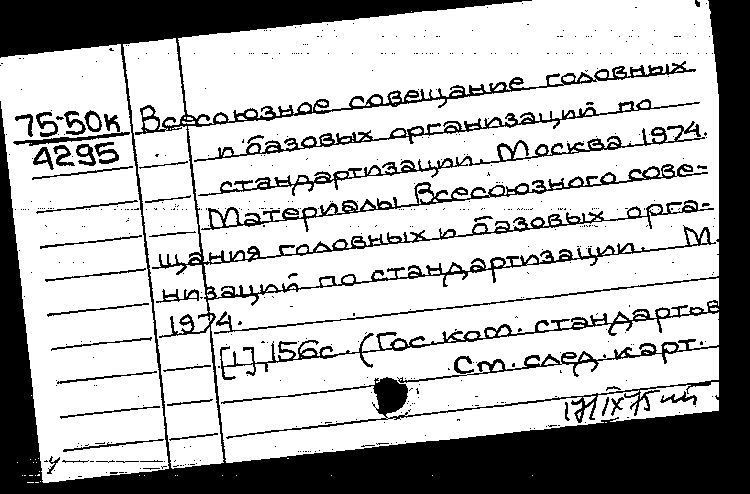 75-50к Всесоюзное совещание головных
4295 и базовых организаций по
стандартизации. Москва. 1974.
Материалы Всесоюзного сове-
щания головных и базовых орга-
низаций по стандартизации. М.
1974.
[1], 156с. (Гос. ком. стандартов
См. след. карт.
17/IX 75
у